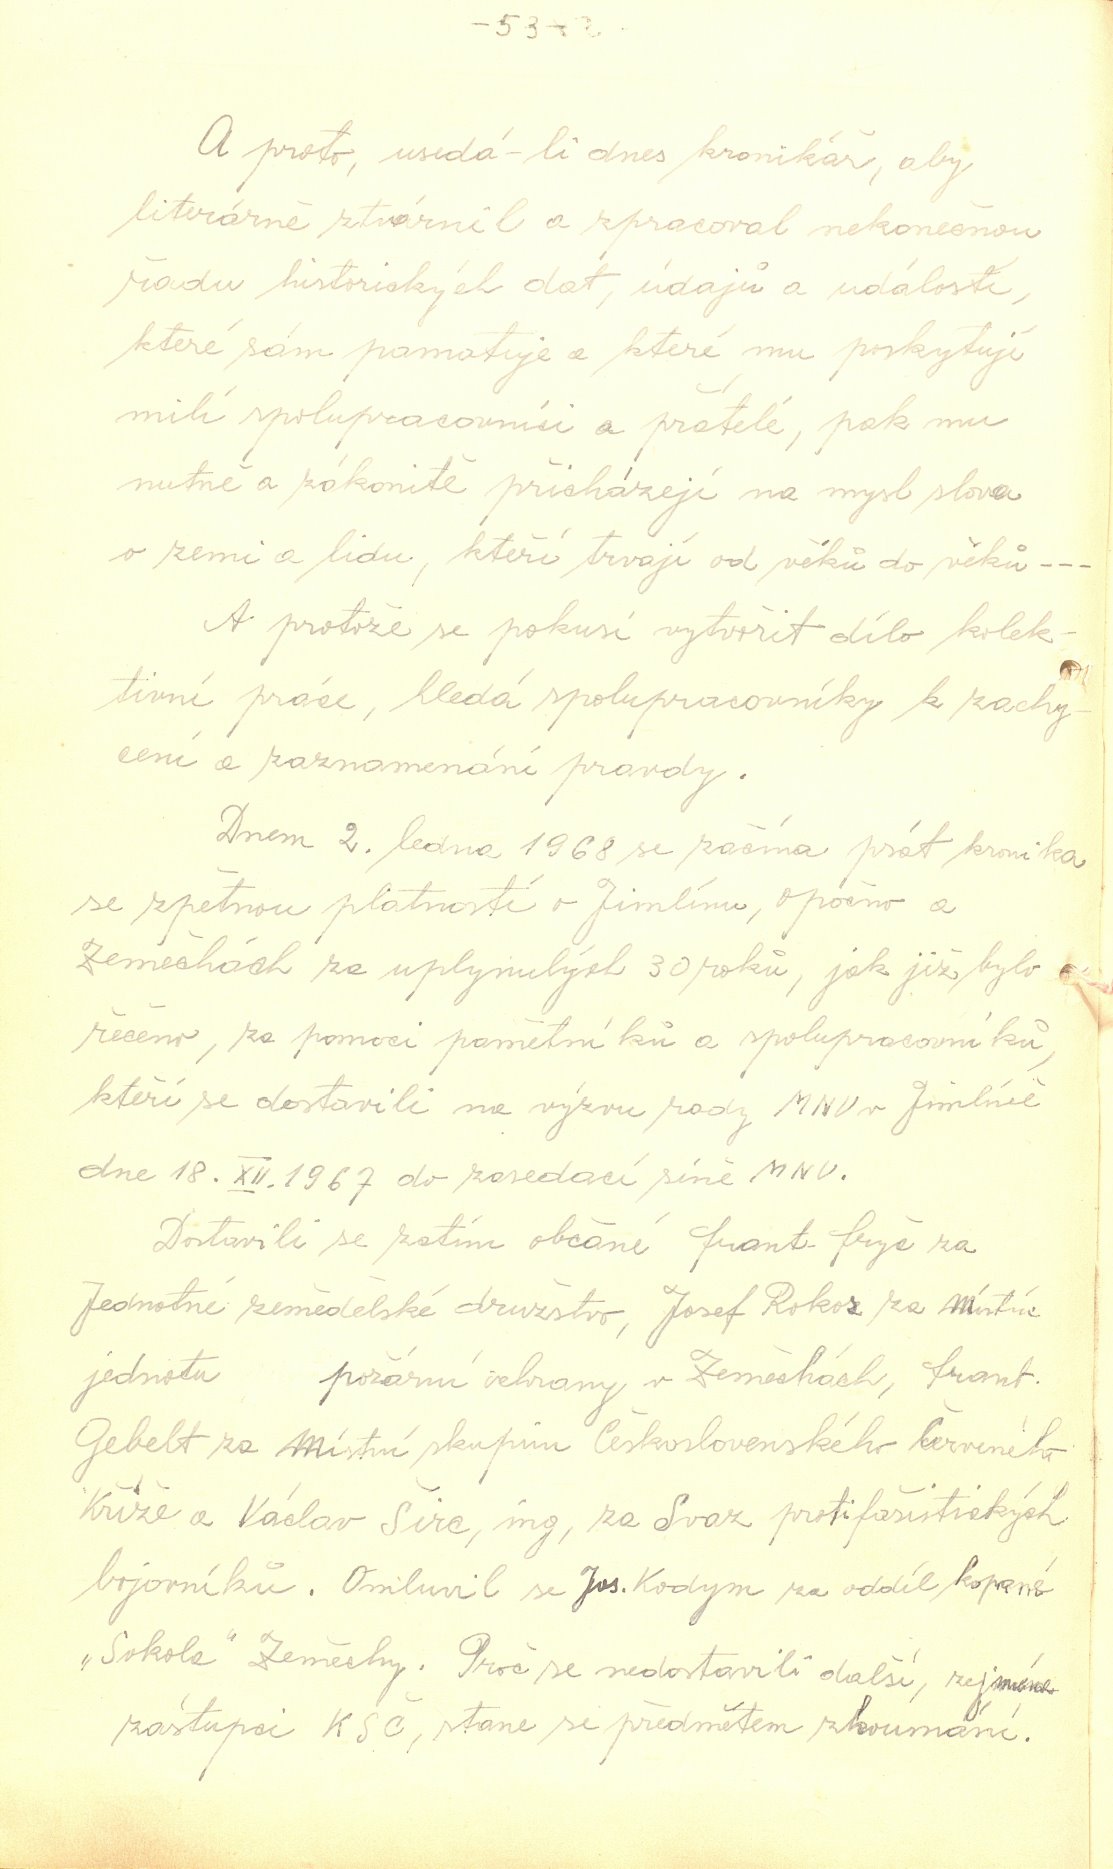 -53-
A proto, usedá-li dnes kronikář, aby
literárně ztvárnil a zpracoval nekonečnou
řadu historických dat, údajů a událostí,
které sám pamatuje a které mu poskytují
milí spolupracovníci a přátelé, pak mu
nutně a zákonitě přicházejí na mysl slova
o zemi a lidu, kteří trvají od věků do věků ---
A protože se pokusí vytvořit dílo kolek-
tivní práce, hledá spolupracovníky k zachy-
cení a zaznamenání pravdy.
Dnem 2. ledna 1968 se začíná psát kronika
se zpětnou platností o Jimlínu, Opočno a
Zeměchách za uplynulých 30 roků, jak již bylo
řečeno, za pomoci pamětníků a spolupracovníků,
kteří se dostavili na výzvu rady MNV v Jimlíně
dne 18. XII. 1967 do zasedací síně MNV.
Dostavili se zatím občané Frant. Fryč za
Jednotné zemědělské družstvo, Josef Rokos za Místní
jednotu požární ochrany v Zeměchách, Frant.
Gebelt za Místní skupinu Československého Červeného
Kříže a Václav Širc, ing, za Svaz protifašistických
bojovníků. Omluvil se Jos. Kodym za oddíl kopané
„Sokola" Zeměchy. Proč se nedostavili další, zejména
zástupci KSČ, stane se předmětem zkoumání.